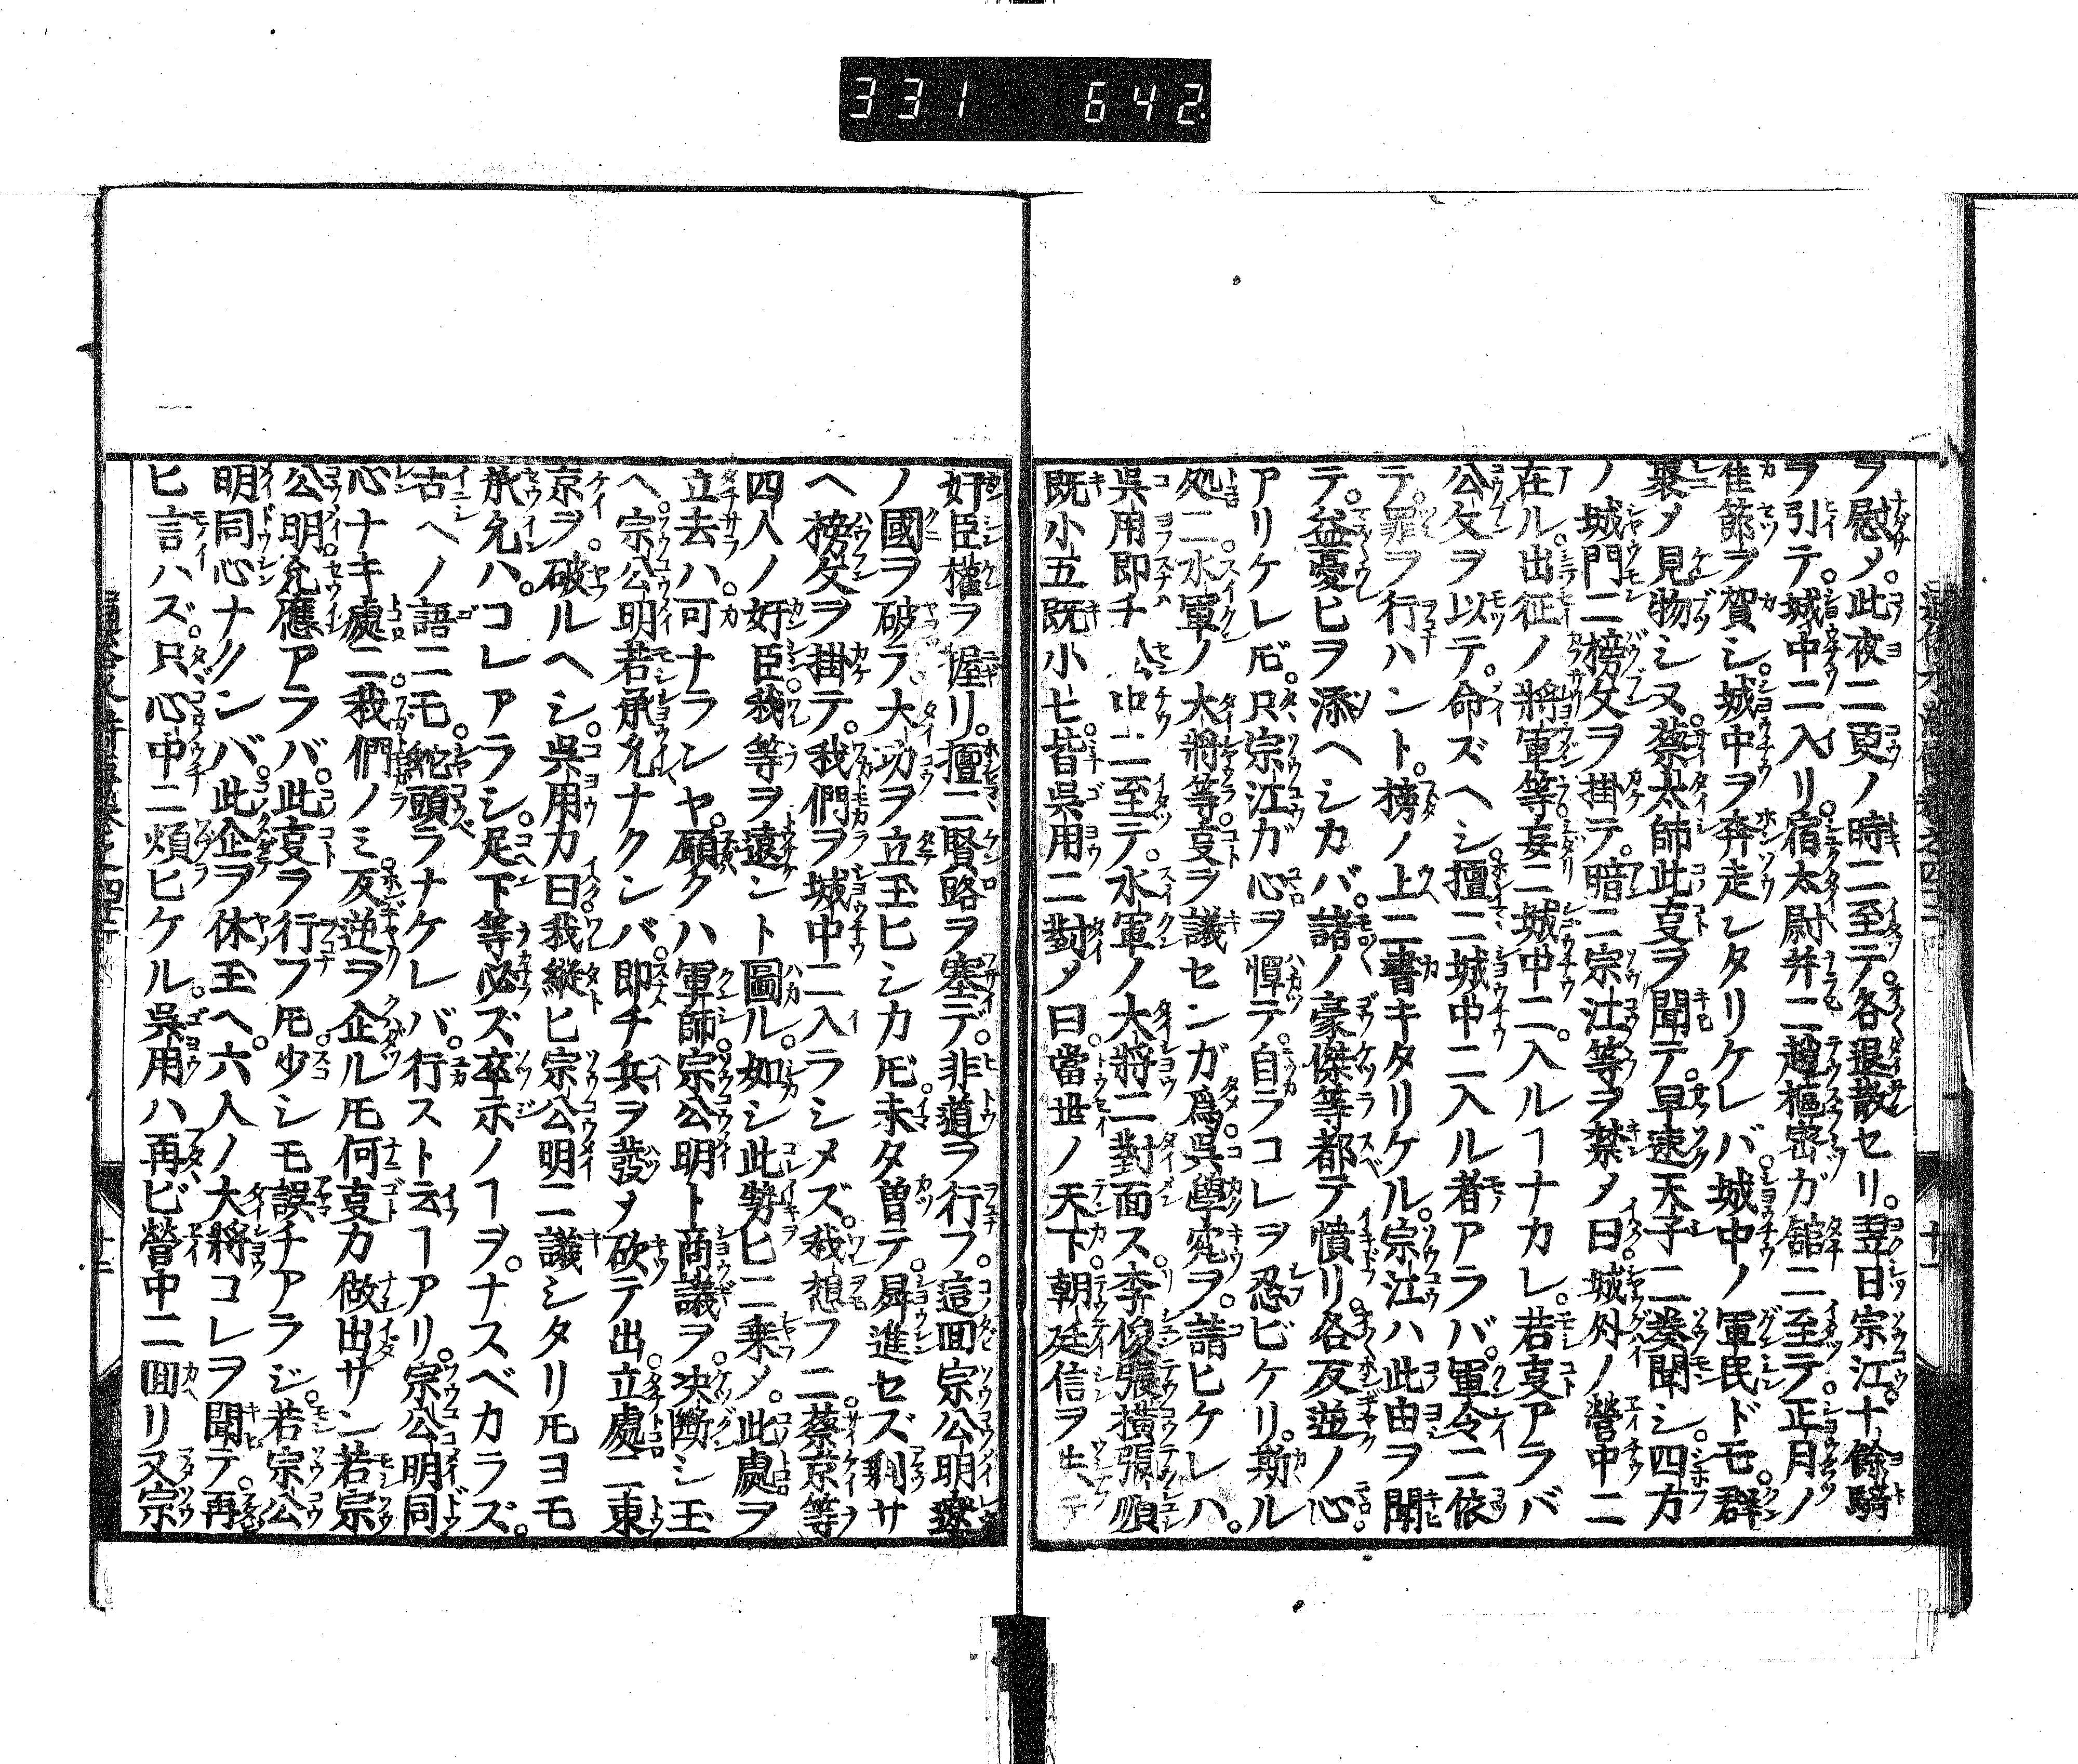 331 642
ヲ慰メ。此夜二更ノ時ニ至テ。各退散セリ。翌日宗江。十餘騎
ヲ引テ。城中ニ入リ。宿太尉并ニ趙樞密ガ舘ニ至テ。正月ノ
佳節ヲ賀シ。城中ヲ奔走シタリケレバ。城中ノ軍民ドモ。群
聚ノ見物シヌ。蔡太師此叓ヲ聞テ。早速天子ニ奏聞シ。四方
ノ城門ニ榜文ヲ掛テ。暗ニ宗江等ヲ禁メ曰。城外ノ營中ニ
在ル。出征ノ將軍等。妄ニ城中ニ。入ルヿナカレ。若叓アラバ
公文ヲ以テ。命ズヘシ。擅ニ城中ニ入ル者アラバ。軍令ニ依
テ。罪ヲ行ハント。榜ノ上ニ書キタリケル。宗江ハ此由ヲ聞
テ。益憂ヒヲ添ヘシカバ。諸ノ豪傑等都テ憤リ。各反逆ノ心
アリケレ𪜈。只宗江ガ心ヲ憚テ。自ラコレヲ忍ビケリ。斯ル
処ニ。水軍ノ大將等。叓ヲ議センガ爲。呉學究ヲ。請ヒケレハ。
呉用即チ 中ニ至テ。水軍ノ大将ニ對面ス。李俊張横張順
阮小五阮小七。皆呉用ニ對メ曰。當世ノ天下。朝廷信ヲ失テ
奸臣權ヲ握リ。擅ニ賢路ヲ塞デ。非道ヲ行フ。這回宗公明遼
ノ國ヲ破ラ大功ヲ立玉ヒシカ𪜈。未タ曽テ昇進セズ剰サ
ヘ榜文ヲ掛テ。我們ヲ城中ニ入ラシメズ。我想フニ。蔡京等
四人ノ奸臣。我等ヲ遠ント圖ル。如シ此勢ヒニ乗メ。此處ヲ
立去ハ。可ナランヤ。願クハ軍師。宗公明ト商議ヲ。决断シ玉
ヘ。宗公明若承允ナクンバ。即チ兵ヲ發メ砍テ出。立處ニ東
京ヲ。破ルヘシ。呉用カ曰。我縦ヒ宗公明ニ議シタリ𪜈ヨモ
承允ハ。コレアラシ。足下等必ズ卒示ノヿヲ。ナスベカラズ。
古ヘノ語ニモ。蛇頭ラナケレバ。行スト云ヿアリ。宗公明同
心ナキ處ニ。我們ノミ反逆ヲ企ル𪜈何叓カ做出サン若宗
公明允應アラバ。此叓ヲ行フ𪜈。少シモ誤チアラジ。若宗公
明同心ナクンバ。此企ヲ休玉ヘ。六人ノ大將コレヲ聞テ。再
ヒ言ハズ。只心中ニ煩ヒケル。呉用ハ再ビ營中ニ回リ又宗